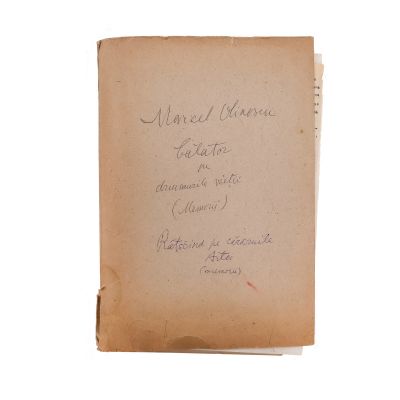 Marcel Olinescu
Călător
pe
drumurile vieții
(Memorii)
Rătăcind pe cărările
Artei
(memorii)